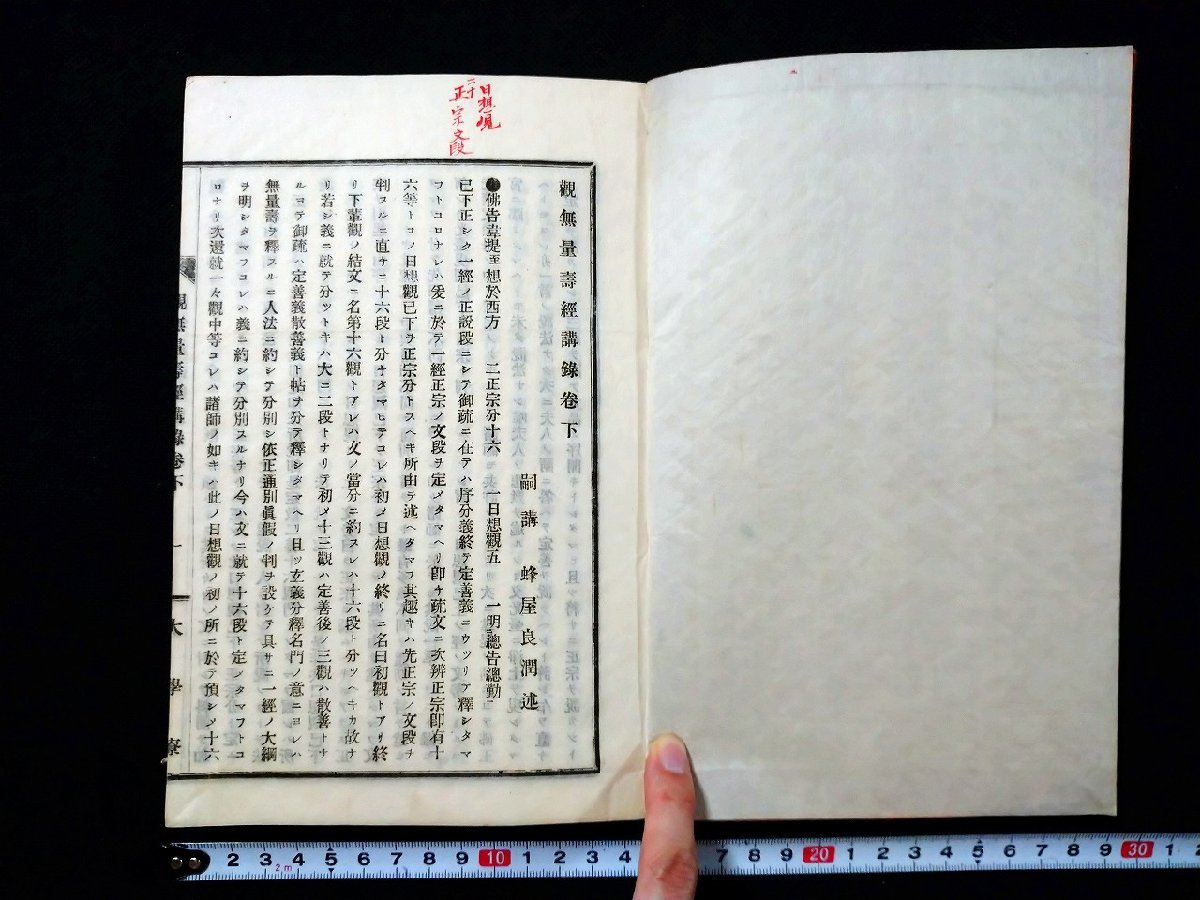 日想觀
正宗文段
觀無量壽經講錄卷下
嗣講 蜂屋良潤述
佛告韋提至想於西方 二正宗分十六 一日想觀五 一明總告總勸
已下正シク一經ノ正説段ニシテ御疏ニ在テハ序分義終テ定善義ニウツリテ釋シタマ
フトコロナレハ爰ニ於テ一經正宗ノ文段ヲ定メタマヘリ即チ疏文ニ次辨正宗即有十
六等トコノ日想觀已下ヲ正宗分トスヘキ所由ヲ述ヘタマフ其趣キハ先正宗ノ文段ヲ
判スルニ直チニ十六段ト分チタマヒテコレハ初メ日想觀ノ終リニ名曰初觀トアリ終
リ下輩觀ノ結文ニ名第十六觀トアレハ文ノ當分ニ約スレハ十六段ト分ツヘキカ故ナ
リ若シ義ニ就テ分ツトキハ大ニ二段トナリテ初メ十三觀ハ定善後ノ三觀ハ散善トナ
ルヨテ御疏ハ定善義散善義ト帖ヲ分テ釋シタマヘリ且ツ玄義分釋名門ノ意ニヨレハ
無量壽ヲ釋スルニ人法ニ約シテ分別シ依正通別眞假ノ判ヲ設ケテ具サニ一經ノ大綱
ヲ明シタマフコレハ義ニ約シテ分別スルナリ今ハ文ニ就テ十六段ト定メタマフトコ
ロナリ次還就一々觀中等コレハ諸師ノ如キハ此ノ日想觀ノ初ノ所ニ於テ預シメ十六
觀無量壽經講錄卷下 一 大學寮
2 3 4 5 6 7 8 9 10 1 2 3 4 7 8 9 20 1 2 3 4 5 6 7 8 9 30 1 2
2m